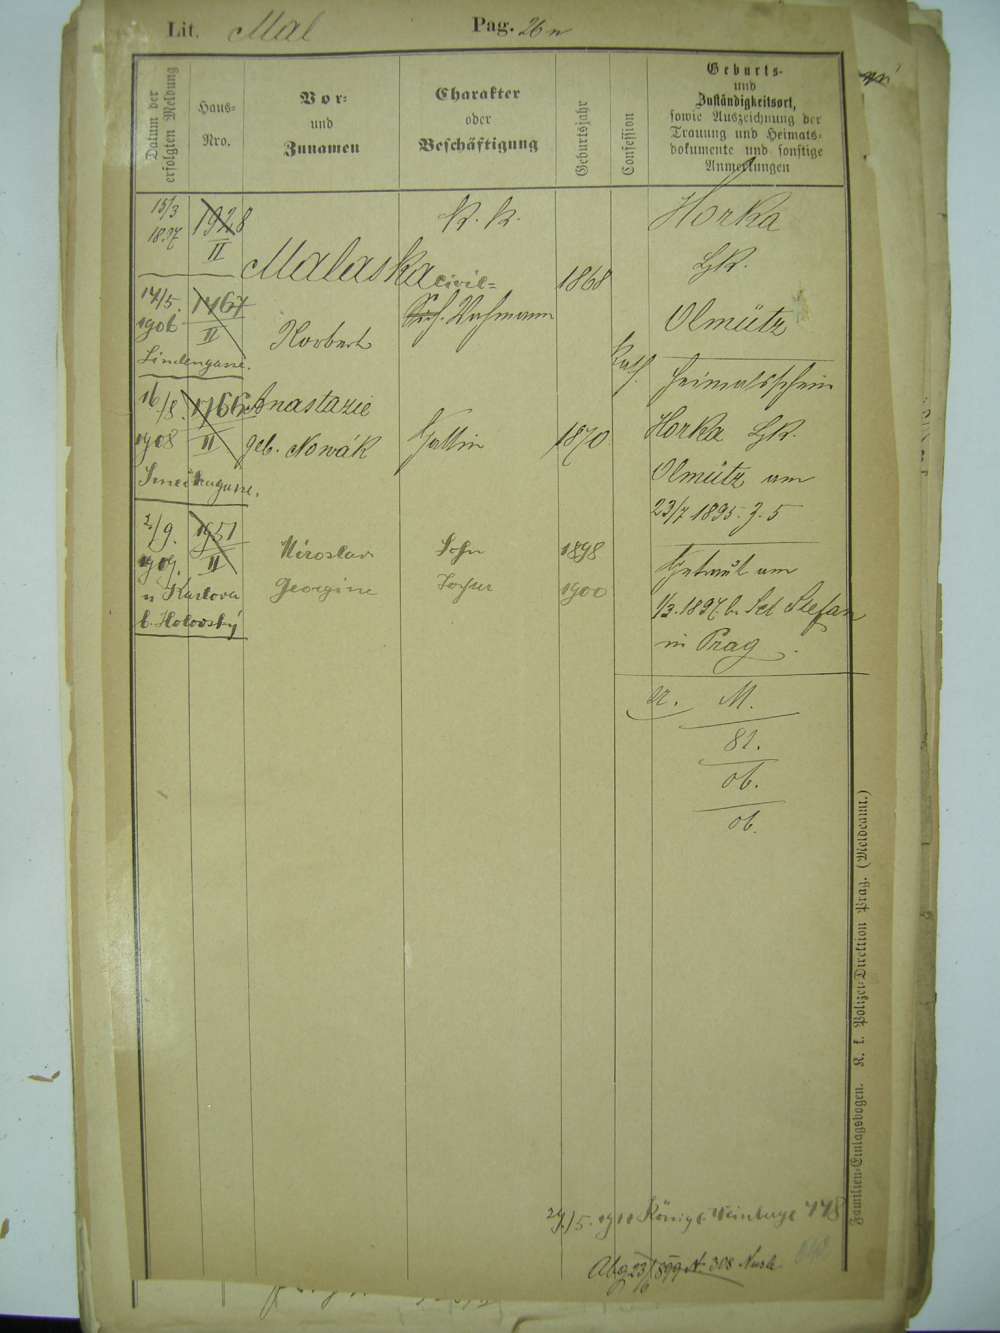 Lit. Mal Pag. 26
Datum der
erfolgten Meldung
Haus-
Nro.
Vor-
und
Zunamen
Charakter
oder
Beschäftigung
Geburtsjahr
Confession
Geburts-
und
Zuständigkeitsort,
sowie Auszeichnung der
Trauung und Heimats-
dokumente und sonstige
Anmerkungen
15/3
1897
1928
II
Malaska
Norbert
k. k.
civil-
Wachmann
1868
Kath.
Horka
Bk.
Olmütz
14/5.
1906
1767
II
Lindengasse.
Heimatschein
16/8.
1908
1766
II
Smečkagasse.
Anastazie
geb. Nowák
Gattin
1870
Horka Bk.
Olmütz am
23/7 1895. Z. 5
2/9.
1909.
1951
II
u Karlova
b. Holovský
Miroslav
Sohn
1898
Georgine
Tochter
1900
Getraut am
1/3. 1897. b. Sct Stefan
in Prag.
M.
81.
ob.
ob.
Familien-Einlagsbogen. K. k. Polizei-Direktion Prag. (Meldeamt.)
29/5. 1911 Königl. Weinberge 778
Abg 23/6 899 N. 308 Nusle